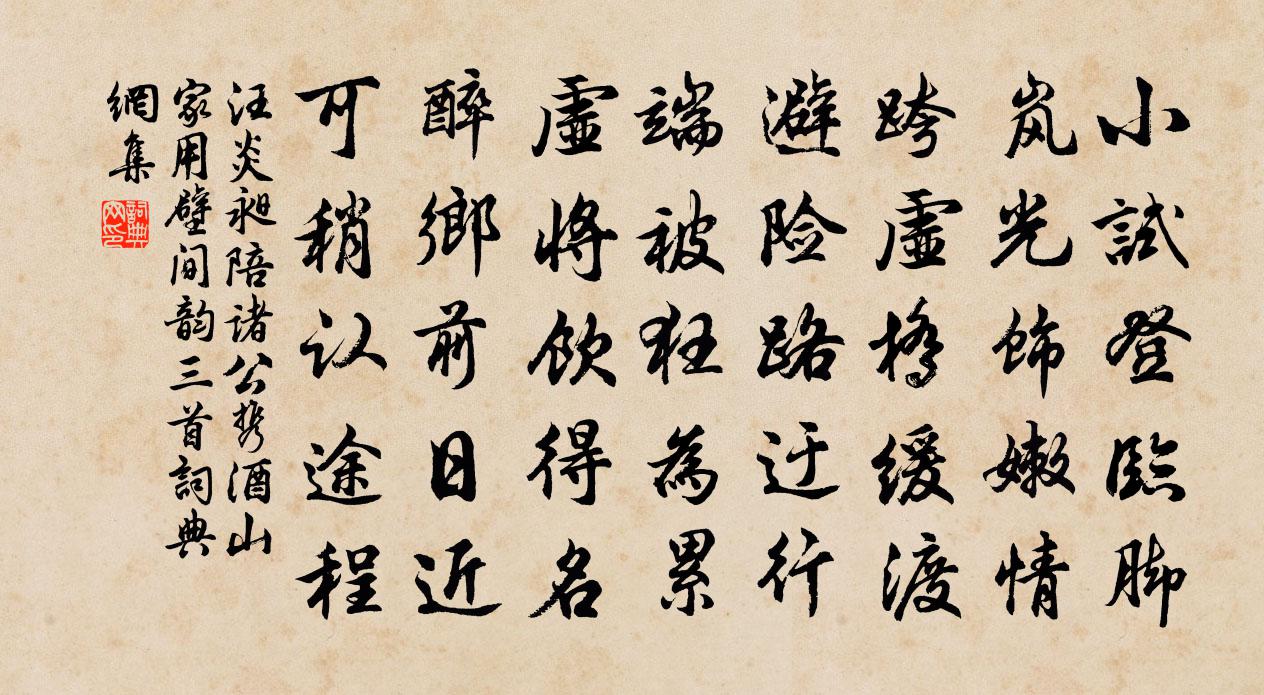 小試登臨脚
岚光飾嫩情
跨虛橋緩渡
避险路迂行
端被狂為累
虛將飲得名
醉鄉前日近
可稍认途程
汪炎昶陪诸公携酒山
家用壁间韵三首詞典
網集
詞典
网印